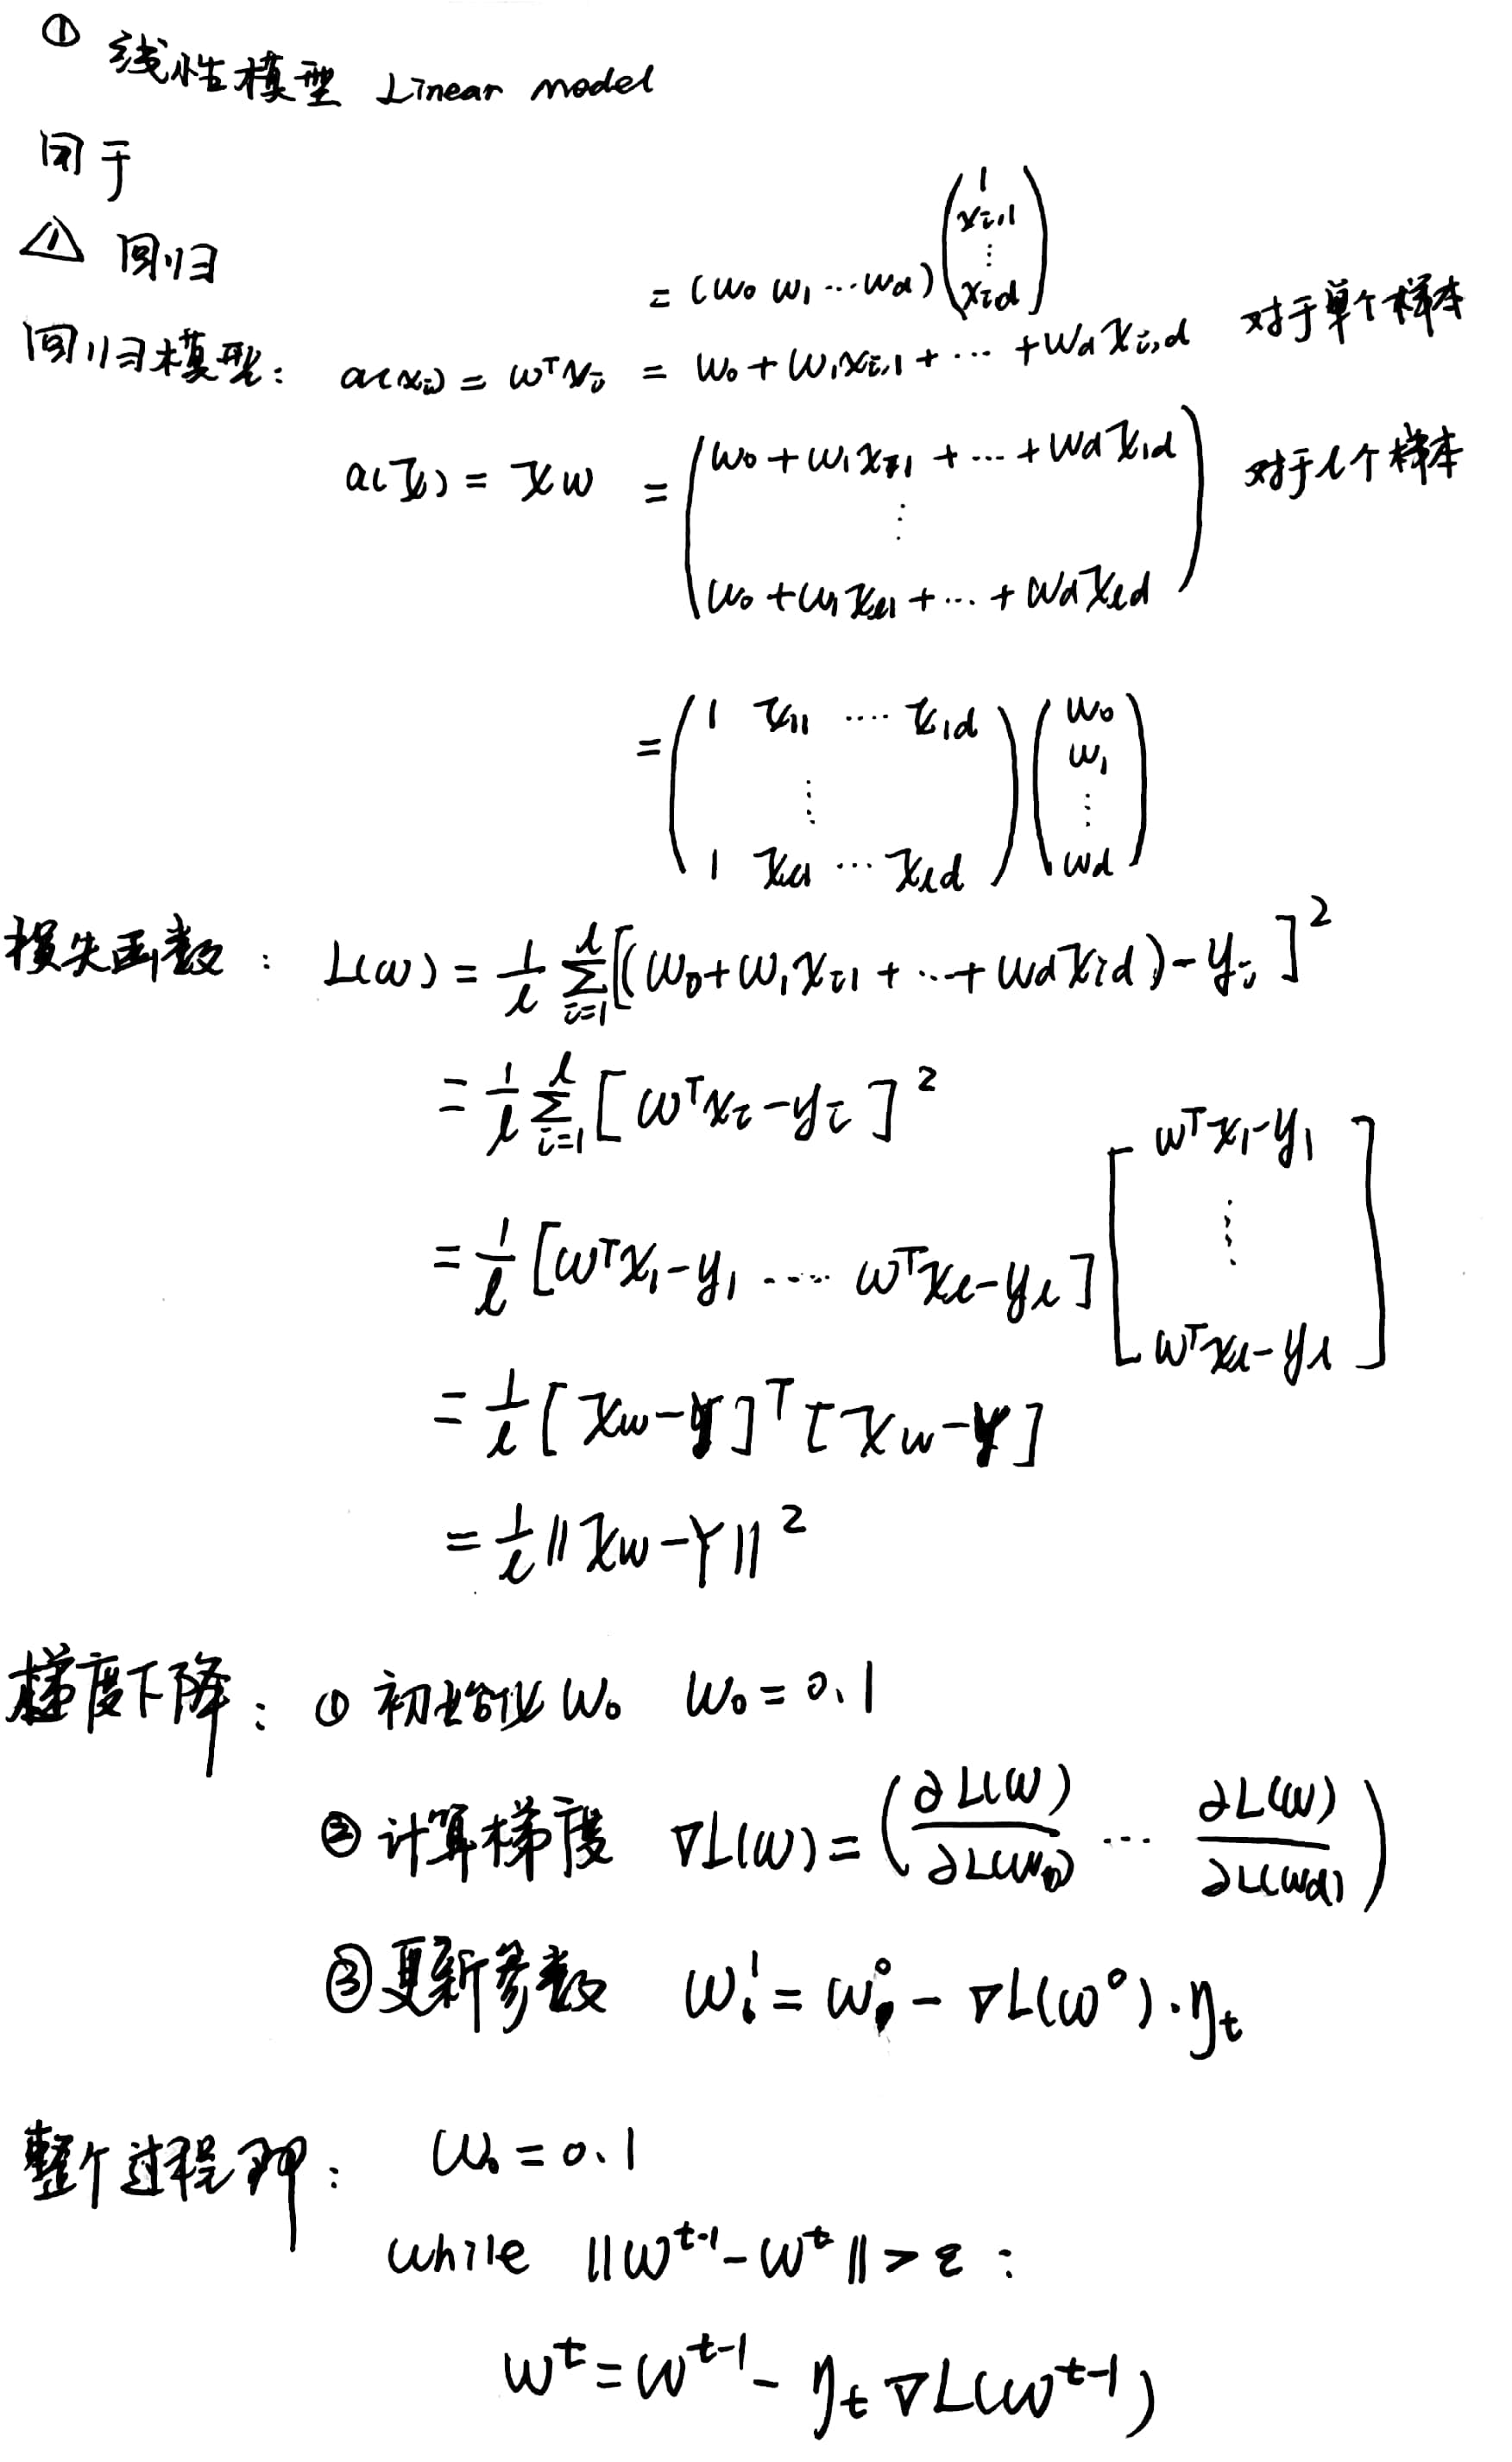 ① 线性模型 Linear model
用于
⚠ 回归
= (w₀ w₁ ⋯ w_d) (1 x_{i,1} ⋮ x_{id})
回归模型: a(x_i) = wᵀx_i = w₀ + w₁x_{i,1} + ⋯ + w_d x_{i,d} 对于单个样本
a(X) = Xw = (w₀ + w₁x_{11} + ⋯ + w_d x_{1d} ⋮ w₀ + w₁x_{ℓ1} + ⋯ + w_d x_{ℓd}) 对于ℓ个样本
= (1 x_{11} ⋯ x_{1d} ⋮ 1 x_{ℓ1} ⋯ x_{ℓd}) (w₀ w₁ ⋮ w_d)
损失函数: L(w) = 1/ℓ Σ_{i=1}^{ℓ} [(w₀ + w₁x_{i1} + ⋯ + w_d x_{id}) - y_i]²
= 1/ℓ Σ_{i=1}^{ℓ} [wᵀx_i - y_i]²
= 1/ℓ [wᵀx₁ - y₁ ⋯ wᵀx_ℓ - y_ℓ] [wᵀx₁ - y₁ ⋮ wᵀx_ℓ - y_ℓ]
= 1/ℓ [Xw - Y]ᵀ [Xw - Y]
= 1/ℓ ‖Xw - Y‖²
梯度下降: ① 初始化 w₀ w₀ = 0.1
② 计算梯度 ∇L(w) = (∂L(w)/∂L(w₀) ⋯ ∂L(w)/∂L(w_d))
③ 更新参数 w_i¹ = w_i⁰ - ∇L(w⁰)·η_t
整个过程即: w₀ = 0.1
while ‖w^{t-1} - w^t‖ > ε :
w^t = w^{t-1} - η_t ∇L(w^{t-1})